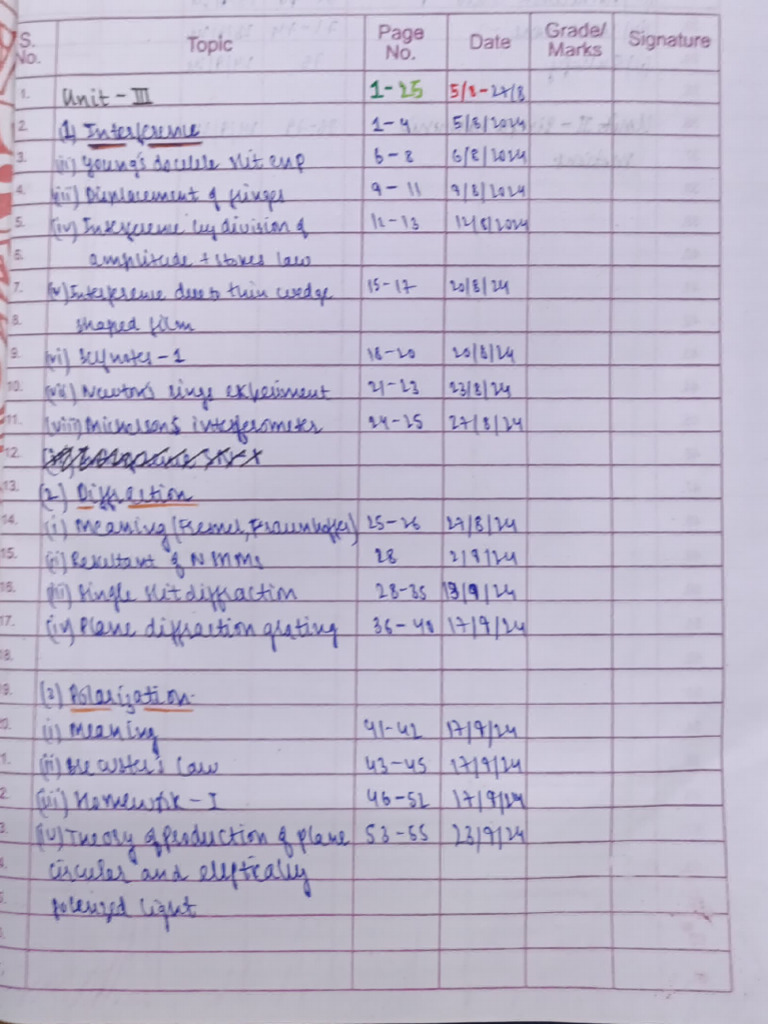 S. No. Topic Page No. Date Grade/ Marks Signature
1. Unit - III 1-25 5/8-27/8
2. (1) Interference 1-4 5/8/2024
3. (ii) Young's double slit exp 6-8 6/8/2024
4. (iii) Displacement of fringes 9-11 9/8/2024
5. (iv) Interference by division of 12-13 12/8/2024
6. amplitude + stokes law
7. (v) Interference due to thin wedge 15-17 20/8/24
8. shaped film
9. (vi) Keynotes-1 18-20 20/8/24
10. (vii) Newton's rings experiment 21-23 23/8/24
11. (viii) Michelson's interferometer 24-25 27/8/24
12.
13. (2) Diffraction
14. (i) Meaning (Fresnel, Fraunhoffer) 25-26 27/8/24
15. (ii) Resultant of N 28 2/9/24
16. (iii) Single slit diffraction 28-35 13/9/24
17. (iv) Plane diffraction grating 36-40 17/9/24
18.
9. (3) Polarization
0. (i) Meaning 41-42 17/9/24
1. (ii) Brewster's Law 43-45 17/9/24
2 (iii) Homework-I 46-52 17/9/24
3. (iv) Theory of production of plane 53-55 23/9/24
circular and elliptically
polarized light